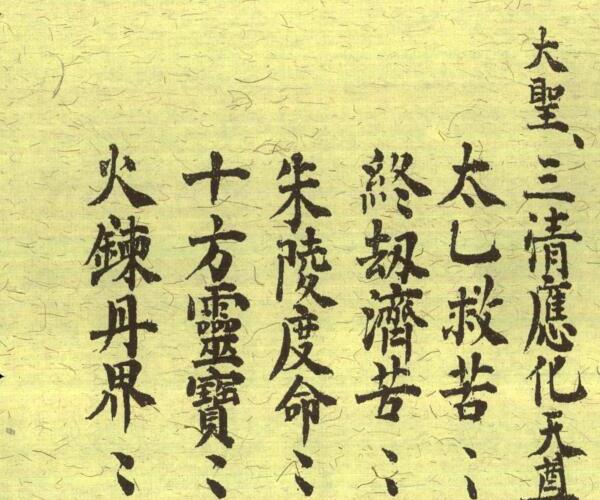 大聖、三清應化天尊
太乙救苦〻
終刼濟苦〻
朱陵度命〻
十方靈寶〻
火鍊丹界〻